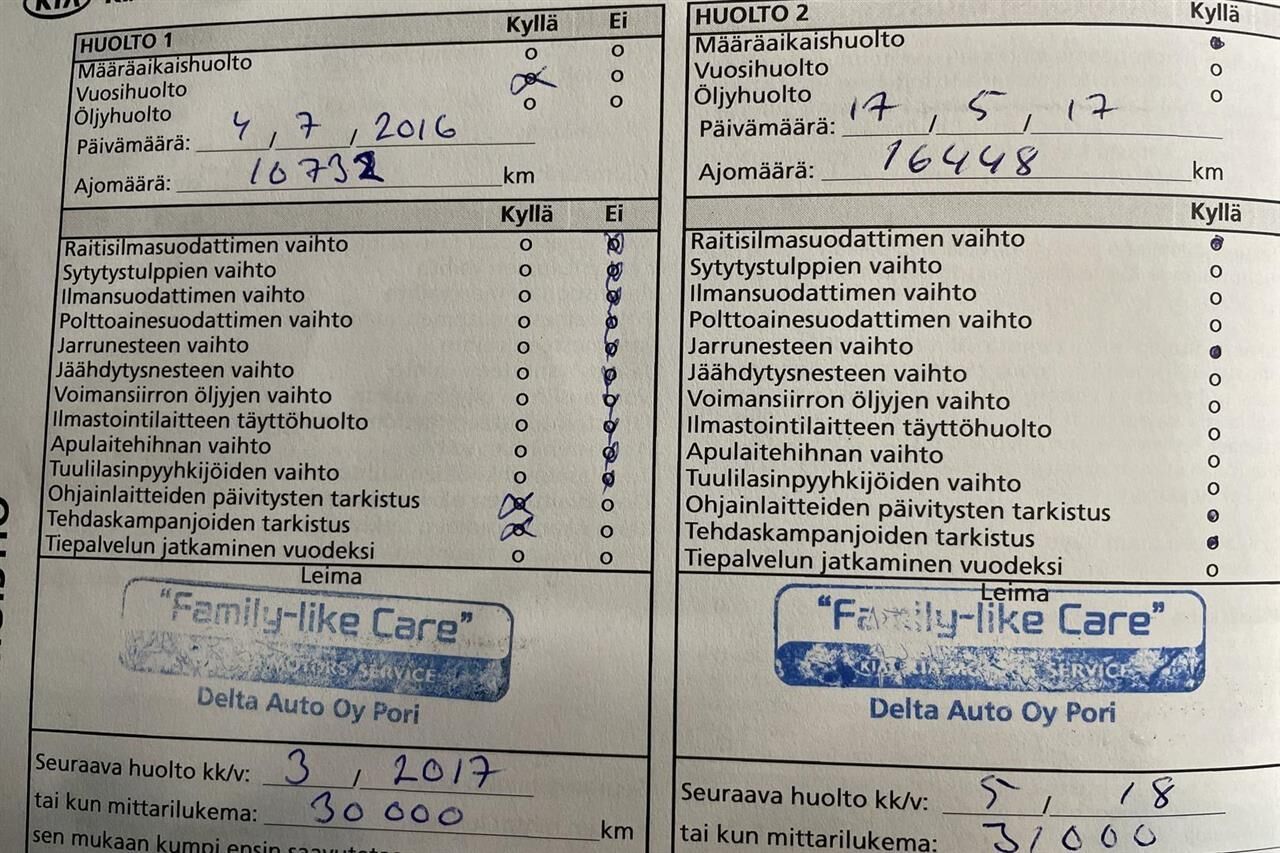 KIA
HUOLTO 1 Kyllä Ei
Määräaikaishuolto o o
Vuosihuolto o o
Öljyhuolto o o
Päivämäärä: 4 / 7 / 2016
Ajomäärä: 10732 km
Kyllä Ei
Raitisilmasuodattimen vaihto o o
Sytytystulppien vaihto o o
Ilmansuodattimen vaihto o o
Polttoainesuodattimen vaihto o o
Jarrunesteen vaihto o o
Jäähdytysnesteen vaihto o o
Voimansiirron öljyjen vaihto o o
Ilmastointilaitteen täyttöhuolto o o
Apulaitehihnan vaihto o o
Tuulilasinpyyhkijöiden vaihto o o
Ohjainlaitteiden päivitysten tarkistus o o
Tehdaskampanjoiden tarkistus o o
Tiepalvelun jatkaminen vuodeksi o o
Leima
"Family-like Care"
MOTORS SERVICE
Delta Auto Oy Pori
Seuraava huolto kk/v: 3 / 2017
tai kun mittarilukema: 30 000 km
sen mukaan kumpi ensin
HUOLTO 2 Kyllä
Määräaikaishuolto o
Vuosihuolto o
Öljyhuolto o
Päivämäärä: 17 / 5 / 17
Ajomäärä: 16448 km
Kyllä
Raitisilmasuodattimen vaihto o
Sytytystulppien vaihto o
Ilmansuodattimen vaihto o
Polttoainesuodattimen vaihto o
Jarrunesteen vaihto o
Jäähdytysnesteen vaihto o
Voimansiirron öljyjen vaihto o
Ilmastointilaitteen täyttöhuolto o
Apulaitehihnan vaihto o
Tuulilasinpyyhkijöiden vaihto o
Ohjainlaitteiden päivitysten tarkistus o
Tehdaskampanjoiden tarkistus o
Tiepalvelun jatkaminen vuodeksi o
Leima
"Family-like Care"
KIA SERVICE
Delta Auto Oy Pori
Seuraava huolto kk/v: 5 / 18
tai kun mittarilukema: 31000